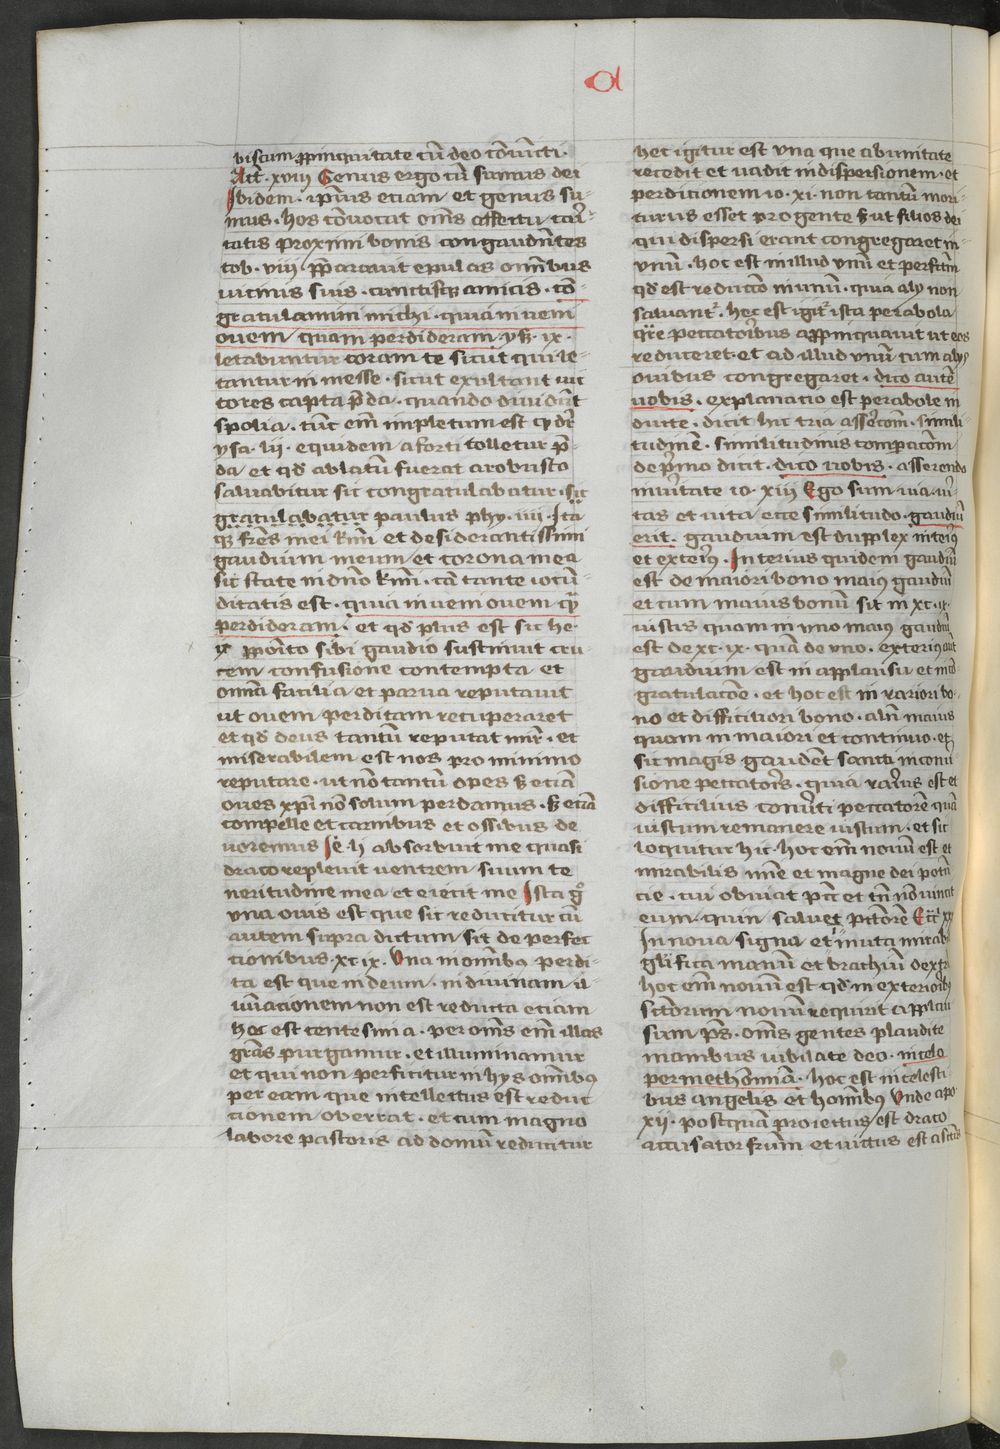 a
biscum ꝓpinquitate cū deo cōiūcti·
Act̄· xviij Genus ergo cū sumus dei
Ibidem· ip̄ius etiam et genus su-
mus· hos cōuocat om̄s affectu cari-
tatis proximi bonis congaudētes
tob· viii· p̄parauit epulas om̄ibus
uicinis suis· cunctisqꝫ amicis· cō-
gratulamini michi· quia inueni
ouem quam perdideram· ys· ix·
letabuntur coram te sicut qui le-
tantur in messe· sicut exultant uic
tores capta p̄da· quando diuidūt
spolia· tūc em̄ impletum est qđ dr̄
ysa· lii· equidem a forti tolletur p̄-
da et qđ ablatū fuerat a robusto
saluabitur sic congratulabatur· sic
gratulabatur paulus phy· iiii· Ita
qꝫ fr̄es mei kr̄mi et desiderantissimi
gaudium meum et corona mea
sic state in dn̄o kr̄mi· cā tante iocū-
ditatis est· quia inueni ouem quā
perdideram· et qđ plus est sic he·
xii ꝓpoīto sibi gaudio sustinuit cru-
cem confusione contempta et
omnia facilia et parua reputauit
ut ouem perditam recuperaret
et qđ deus tantū reputat mir̄· et
miserabilem est nos pro minimo
reputare· ut nō tantū opes sꝫ etiā
oues xp̄i nō solum perdamus· sꝫ etiā
cum pelle et carnibus et ossibus de
uoremus Ie· li absorbuit me quasi
draco repleuit uentrem suum te
neritudine mea et eiecit me Ista gͦ
vna ouis est que sic reducitur cū
autem supra dictum sit de perfec
tionibus· xc ix· Una in omnibꝰ perdi-
ta est que in deum in diuinam u-
niuationem non est reducta etiam
hoc est centesima· per om̄s em̄ illas
gr̄as purgamur· et illuminamur
et qui non perficitur in hys om̄ibꝰ
per eam que intellectus est reduc
tionem oberrat· et cum magno
labore pastoris ad domū reducitur
hec igitur est vna que ab unitate
recedit et uadit in dispersionem· et
perditionem io· xi· non tantū mori-
turus esset pro gente sꝫ ut filios dei
qui dispersi erant congregaret in-
vnū· hoc est in illud vnū et perfectū
qđ est reductio in unū· quia aly non
saluant᷑· hec est igit᷑ ista perabola
qr̄e peccatoribus appinquauit ut eos
reduceret· et ad illud vnū cum alys
ouibus congregaret· dico autē
uobis· explanatio est perabole in
ducte· dicit hic tria assercōem· simili-
tudinē· similitudinis comparacōem
de p̄mo dicit· dico uobis· asserendo
in ūitate io· xiii Ego sum uia· ūi-
tas et uita ecce similitudo· gaudiū
erit· gaudium est dupplex interiꝰ
et exteriꝰ· Interius quidem gaudiū
est de maiori bono maiꝰ gaudiū
et cum maius bonū sit in xc· ix·
iustis quam in vno maiꝰ gaudiū
est de xc· ix· quā de vno· exteriꝰ aūt
gaudium est in applausu et in cō
gratulacōe· et hoc est in rariori bo-
no et difficiliori bono· aliꝰ maius
quam in maiori et continuo· et
sic magis gaudēt sancti in conū
sione peccatoris· quia rariꝰ est et
difficilius conūti peccatorē quā
iustum remanere iustum· et sic
loquitur hic· hoc em̄ nouū est et
mirabilis īme et magne dei potē
cie· cui obuiat pc̄c et tn̄ nō uincit
eum quin saluet pctōrē Ecc̄i xxx
Innoua signa et īmuta mirab
glifica manū et brachiū dextr̄
hoc em̄ nouū est qđ in exterioribꝰ
sctōrum nouū requirit applau
sum p̄s· om̄s gentes plaudite
manibus iubilate deo· in celo
per methōimiā· hoc est in celesti
bus angelis et homībꝰ Unde apo
xij· postquā proiectus est draco
accusator frūm et uictus est a scīs